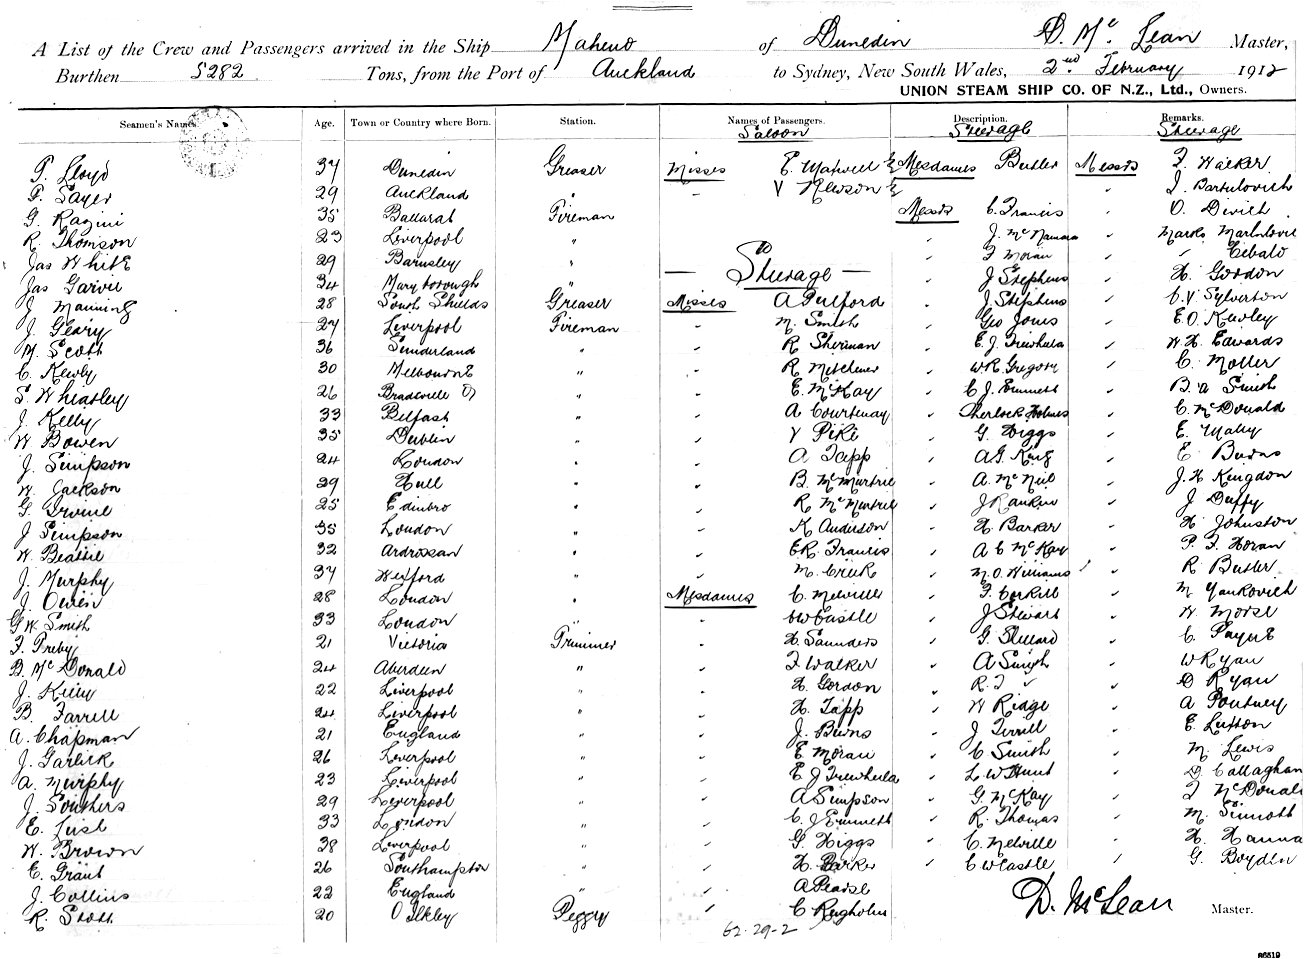 A List of the Crew and Passengers arrived in the Ship Maheno of Dunedin D. McLean Master,
Burthen 5282 Tons, from the Port of Auckland to Sydney, New South Wales, 2nd February 1912
UNION STEAM SHIP CO. OF N.Z., Ltd., Owners.
Seamen's Names. Age. Town or Country where Born. Station. Names of Passengers. Description. Remarks.
Saloon Steerage Steerage
Lloyd 37 Dunedin Greaser Misses E. Maxwell Mesdames Butler Messrs F. Walker
Sayer 29 Auckland " V Hewson " J. Bartulovich
G. Ragini 35 Ballarat Fireman Messrs C. Francis O. Divich
R. Thomson 23 Liverpool " J. McNamara Marko Martulovic
Jas White 29 Barnsley " Steerage F Moran " Cibalo
Jas Garvie 34 Maryborough J Stephens H. Gordon
J Manning 28 South Shields Greaser Misses A Pulford J. Stephens C.V Sylverton
J. Geary 27 Liverpool Fireman M. Smith Geo Jones E.O. Kewley
M. Scott 36 Sunderland " R Sherman E.J. Trewhela W H. Edwards
C. Kewly 30 Melbourne " R Mitchener W.R. Gregory C. Moller
S. Wheatley 26 " E. McKay C J. Emmett B. A Smith
J. Kelly 33 Belfast " A Courtenay Sherlock Holmes C. McDonald
W Bowen 35 Dublin " V Pike G. Higgs E. Malley
J. Simpson 24 London " A Tapp A.G. King E Burns
W. Jackson 39 Hull " B. McMurtrie A. McNeil J. H Kingdon
G. Irvine 25 Edinbro " R McMurtrie J Rankin J Duffy
J Simpson 35 London " K Anderson H. Barker H. Johnston
W. Beattie 32 Ardrossan " E.R. Francis A C McKay P. F. Horan
J. Murphy 37 Wexford " M. Crick M.O. Williams R Butler
J. Owen 28 London " Mesdames C. Melville F. Corkill M Yankovich
G W. Smith 33 London " W Castle J Stewart W Morse
F. Freby 21 Victoria Trimmer H. Saunders G. Stellard C. Payne
B. McDonald 24 Aberdeen " F Walker A Smyth W Ryan
J. Kelly 22 Liverpool " H. Gordon R. J " D Ryan
B. Farrell 24 Liverpool " H. Tapp W Ridge A Pountney
A. Chapman 21 England " J. Burns J Tirrell E. Lufton
J. Garlick 26 Liverpool " E Moran C Smith M. Lewis
A. Murphy 23 Liverpool " E J Trewhela L. W Hunt D Callaghan
J. Southers 29 Liverpool " A Simpson G. McKay J McDonald
E. Lusk 33 London " C. J Emmett R. Thomas M. Sinnott
W. Brown 38 Liverpool " G Higgs C. Melville H. Hanna
E. Grant 26 Southampton " H. Barker C W Castle G. Boyden
J. Collins 22 England " A Pearse
R. Stott 20 O Ilkley Peggy C
D. McLean Master.
62-29-2
86519